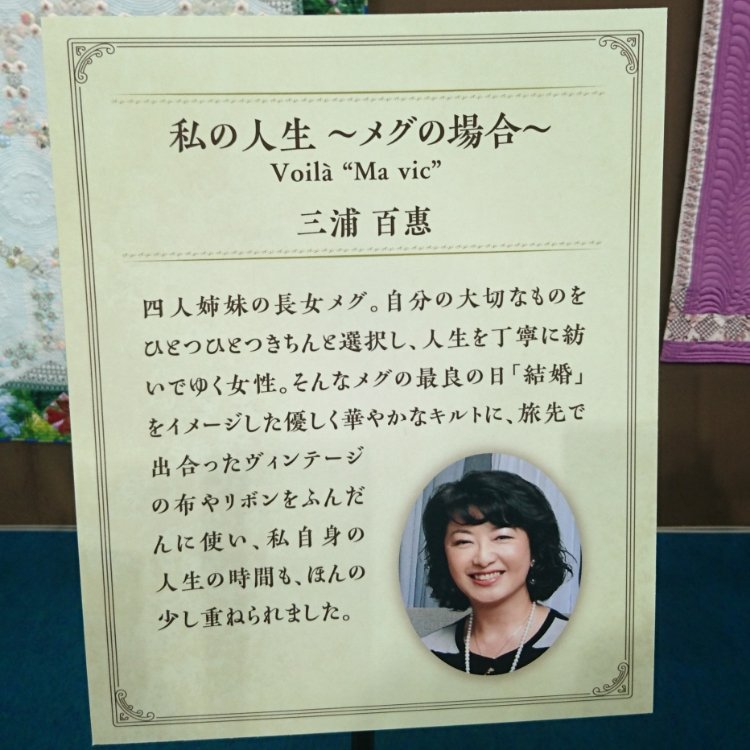 私の人生 ～メグの場合～
Voilà “Ma vic”
三浦 百惠
四人姉妹の長女メグ。自分の大切なものを
ひとつひとつきちんと選択し、人生を丁寧に紡
いでゆく女性。そんなメグの最良の日「結婚」
をイメージした優しく華やかなキルトに、旅先で
出合ったヴィンテージ
の布やリボンをふんだ
んに使い、私自身の
人生の時間も、ほんの
少し重ねられました。